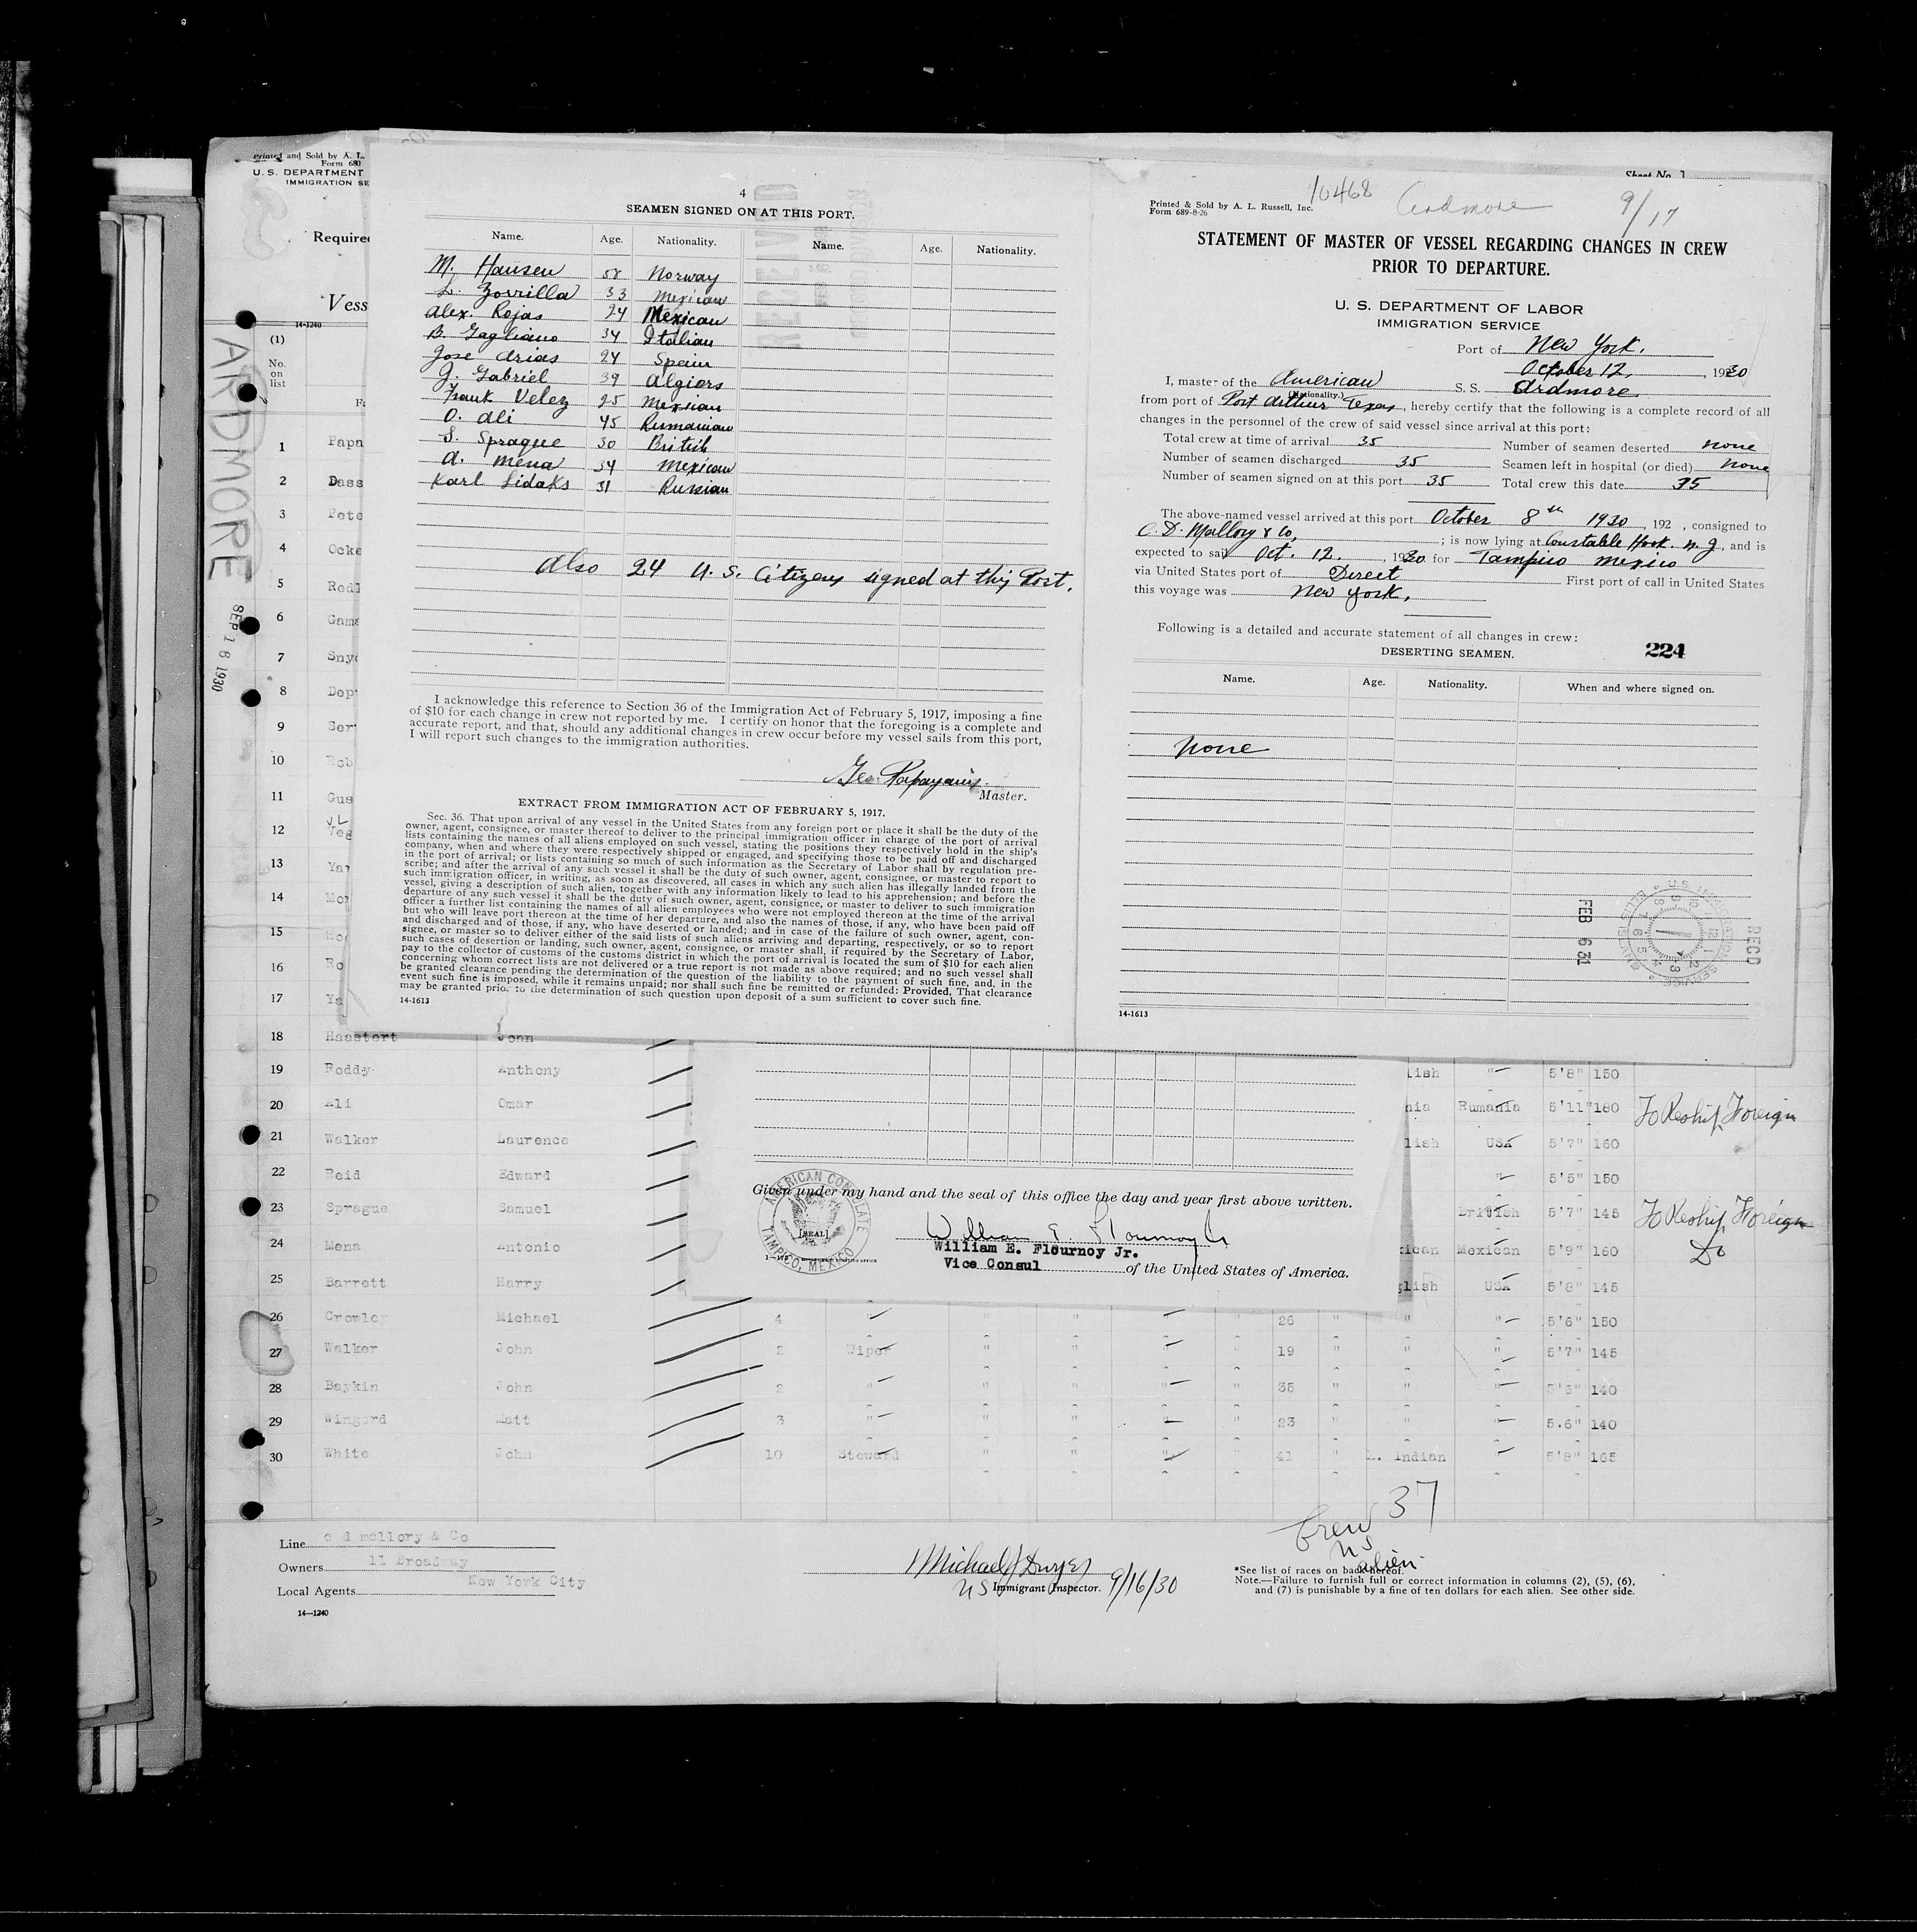 Printed and Sold by A. L.
Form 680
U. S. DEPARTMENT
IMMIGRATION SE
Required
Vess
14-1240
(1)
No.
on
list
ARDMORE
SEP 16 1930
Sheet No. 1
4
SEAMEN SIGNED ON AT THIS PORT.
Name. Age. Nationality. Name. Age. Nationality.
M. Hansen 58 Norway
L. Zorrilla 33 Mexican
Alex. Rojas 24 Mexican
B. Gagliano 34 Italian
Jose Arias 24 Spain
J. Gabriel 39 Algiers
Frank Velez 25 Mexican
O. Ali 45 Rumanian
S. Sprague 30 British
A. Mena 34 Mexican
Karl Lidaks 31 Russian
Also 24 U. S. Citizens signed at this Port.
I acknowledge this reference to Section 36 of the Immigration Act of February 5, 1917, imposing a fine
of $10 for each change in crew not reported by me. I certify on honor that the foregoing is a complete and
accurate report, and that, should any additional changes in crew occur before my vessel sails from this port,
I will report such changes to the immigration authorities.
Geo.
Master.
EXTRACT FROM IMMIGRATION ACT OF FEBRUARY 5, 1917.
Sec. 36. That upon arrival of any vessel in the United States from any foreign port or place it shall be the duty of the
owner, agent, consignee, or master thereof to deliver to the principal immigration officer in charge of the port of arrival
lists containing the names of all aliens employed on such vessel, stating the positions they respectively hold in the ship's
company, when and where they were respectively shipped or engaged, and specifying those to be paid off and discharged
in the port of arrival; or lists containing so much of such information as the Secretary of Labor shall by regulation pre-
scribe; and after the arrival of any such vessel it shall be the duty of such owner, agent, consignee, or master to report to
such immigration officer, in writing, as soon as discovered, all cases in which any such alien has illegally landed from the
vessel, giving a description of such alien, together with any information likely to lead to his apprehension; and before the
departure of any such vessel it shall be the duty of such owner, agent, consignee, or master to deliver to such immigration
officer a further list containing the names of all alien employees who were not employed thereon at the time of the arrival
but who will leave port thereon at the time of her departure, and also the names of those, if any, who have been paid off
and discharged and of those, if any, who have deserted or landed; and in case of the failure of such owner, agent, con-
signee, or master so to deliver either of the said lists of such aliens arriving and departing, respectively, or so to report
such cases of desertion or landing, such owner, agent, consignee, or master shall, if required by the Secretary of Labor,
pay to the collector of customs of the customs district in which the port of arrival is located the sum of $10 for each alien
concerning whom correct lists are not delivered or a true report is not made as above required; and no such vessel shall
be granted clearance pending the determination of the question of the liability to the payment of such fine, and, in the
event such fine is imposed, while it remains unpaid; nor shall such fine be remitted or refunded: Provided, That clearance
may be granted prior to the determination of such question upon deposit of a sum sufficient to cover such fine.
14-1613
10468 Ardmore 9/17
Printed & Sold by A. L. Russell, Inc.
Form 689-8-26
STATEMENT OF MASTER OF VESSEL REGARDING CHANGES IN CREW
PRIOR TO DEPARTURE.
U. S. DEPARTMENT OF LABOR
IMMIGRATION SERVICE
Port of New York.
October 12, 1930
I, master of the American S. S. Ardmore
(Nationality.)
from port of Port Arthur Texas, hereby certify that the following is a complete record of all
changes in the personnel of the crew of said vessel since arrival at this port:
Total crew at time of arrival 35 Number of seamen deserted none
Number of seamen discharged 35 Seamen left in hospital (or died) none
Number of seamen signed on at this port 35 Total crew this date 35
The above-named vessel arrived at this port October 8th 1930, 192 , consigned to
C. D. Mallory & Co, ; is now lying at Constable Hook. N. J, and is
expected to sail Oct. 12. , 1930 for Tampico Mexico
via United States port of Direct First port of call in United States
this voyage was New York.
Following is a detailed and accurate statement of all changes in crew:
DESERTING SEAMEN. 224
Name. Age. Nationality. When and where signed on.
None
FEB 6 31
RECD
U.S. IMMIGRATION SERVICE
ELLIS IS
14-1613
1 Papa
2 Dass
3 Pete
4 Ocke
5 Redl
6 Gama
7 Snyd
8 Dep
9 Ser
10 Rob
11 Gus
12 Veg
13 Ya
14 Mo
15 Ro
16 Ro
17 Ya
18 Hasstert John
19 Roddy Anthony lish "— 5'8" 150
20 Ali Omar nia Rumania 5'11" 180 To Reship Foreign
21 Walker Laurence lish USA 5'7" 160
22 Reid Edward "— 5'5" 150
23 Sprague Samuel British 5'7" 145 To Reship Foreign
24 Mena Antonio ican Mexican 5'9" 160 Do
25 Barrett Harry glish USA 5'8" 145
26 Crowley Michael 4 " " " " " 26 " " " 5'6" 150
27 Walker John 2 Wiper " " " " 19 " " " 5'7" 145
28 Baykin John 2 " " " " " 35 " " " 5'6" 140
29 Wingard Matt 3 " " " " " 23 " " " 5.6" 140
30 White John 10 Steward " " " " 41 " W. Indian 5'8" 165
Given under my hand and the seal of this office the day and year first above written.
AMERICAN CONSULATE
[SEAL]
TAMPICO, MEXICO
William E. Flournoy Jr
William E. Flournoy Jr.
Vice Consul of the United States of America.
Crew 37
US
alien
Line c d mallory & Co
Owners 11 Broadway
New York City
Local Agents
14-1240
Michael J Dwyer
US Immigrant Inspector. 9/16/30
*See list of races on back hereof.
Note.—Failure to furnish full or correct information in columns (2), (5), (6),
and (7) is punishable by a fine of ten dollars for each alien. See other side.